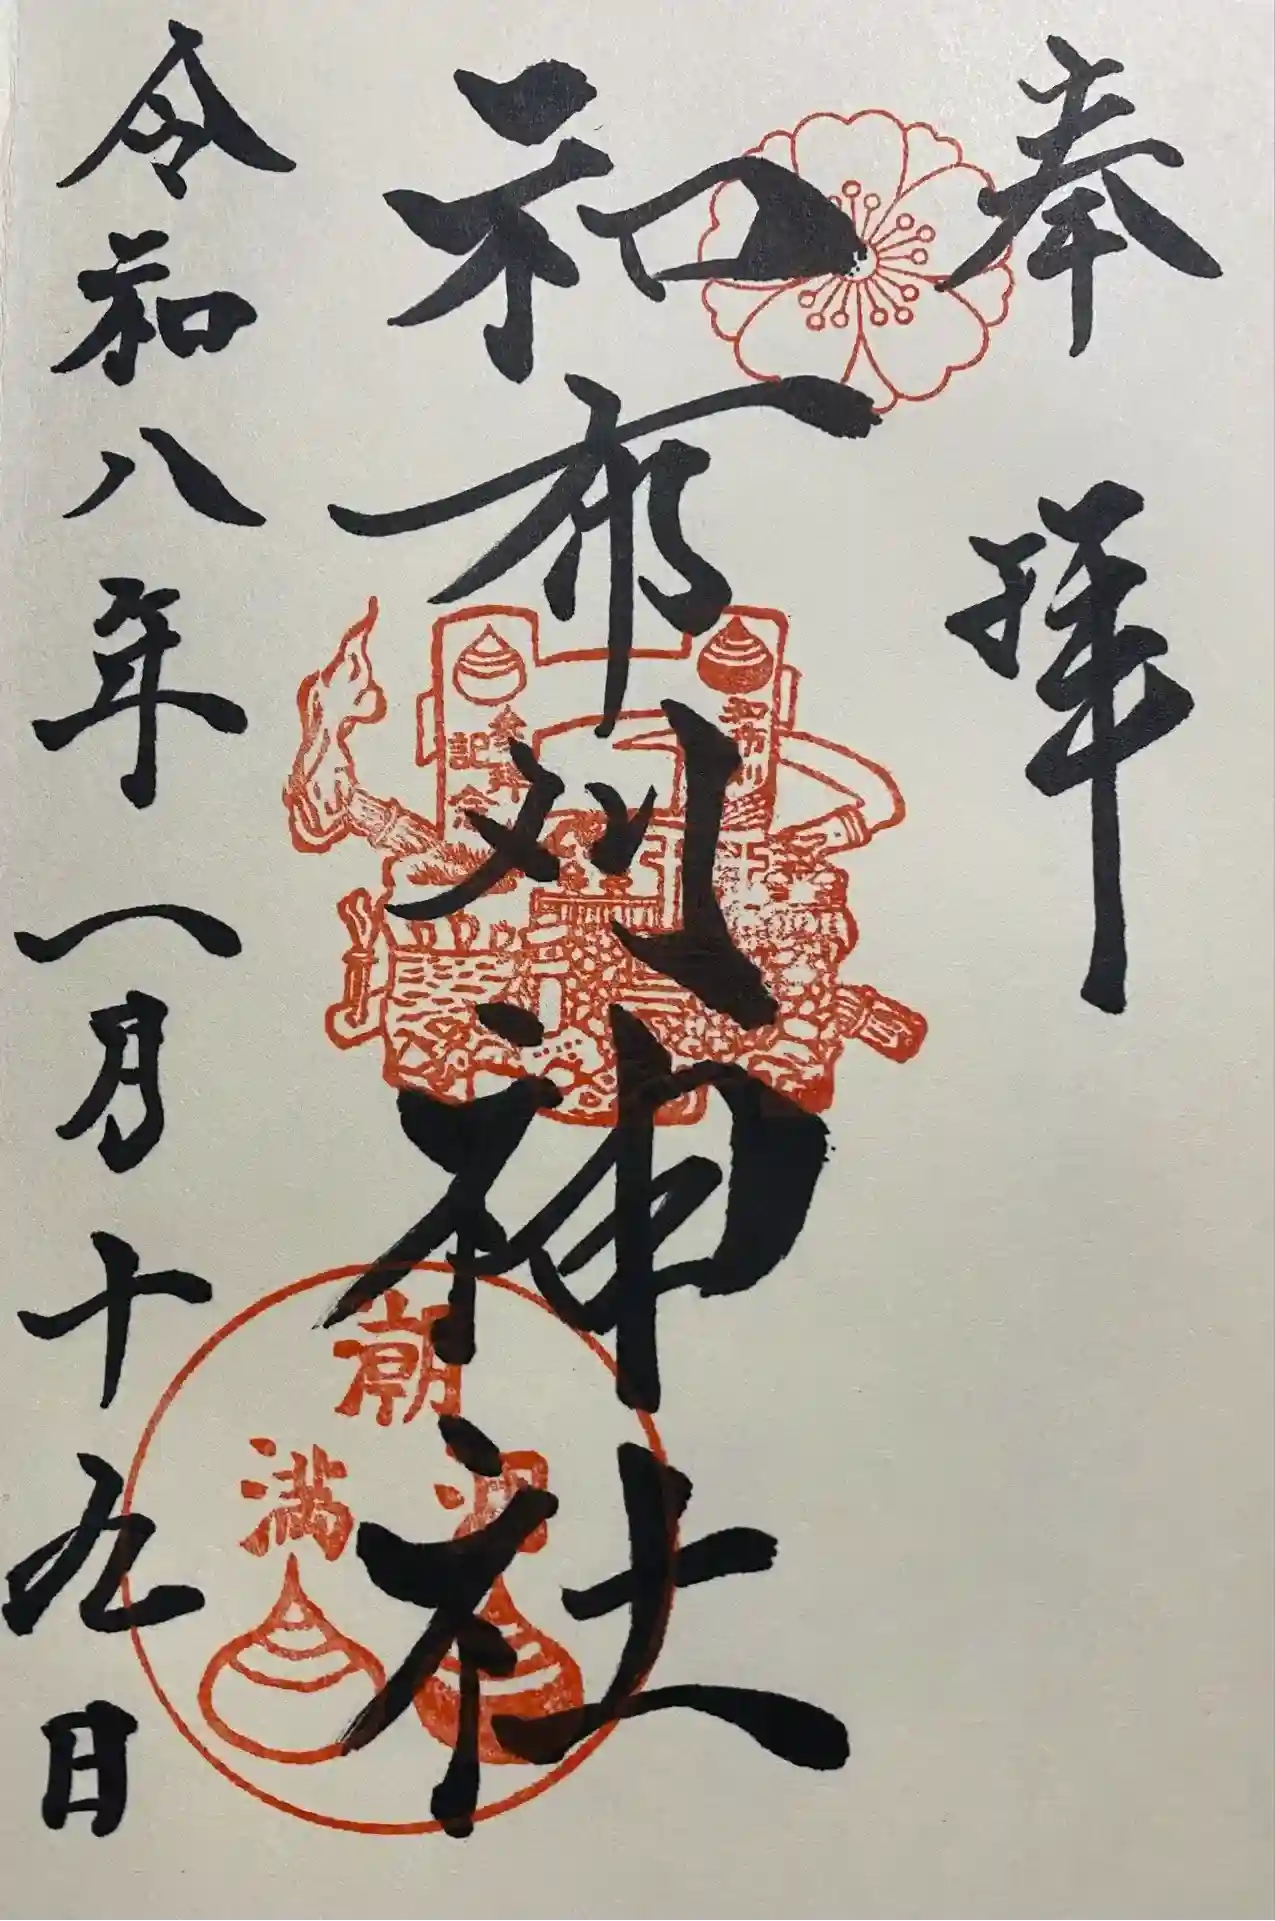 奉拝
和布刈神社
令和八年一月十九日
和布刈
参拝
記念
潮
満